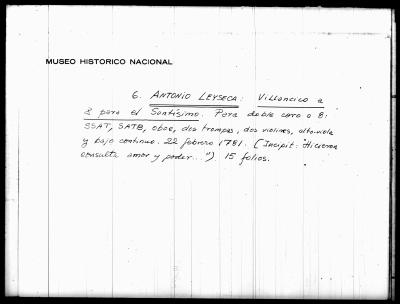 MUSEO HISTORICO NACIONAL
6. ANTONIO LEYSECA: Villancico a
8 para el Santísimo. Para doble coro a 8:
SSAT, SATB, oboe, dos trompas, dos violines, alto-viola
y bajo continuo. 22 febrero 1781. (Incipit: "Hicieron
consulta amor y poder...") 15 folios.